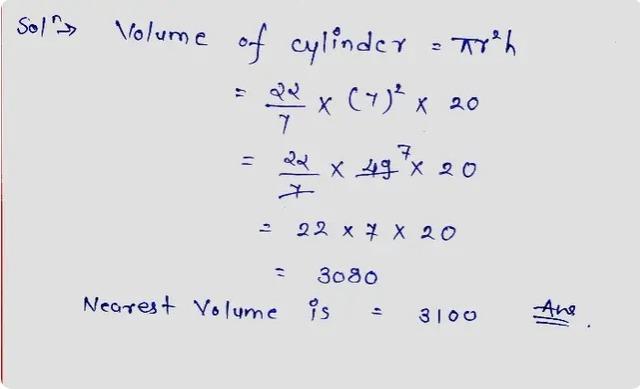 Solⁿ⇒ Volume of cylinder = πr²h
= 22/7 × (7)² × 20
= 22/7 × 49⁷ × 20
= 22 × 7 × 20
= 3080
Nearest Volume is = 3100 Ans.